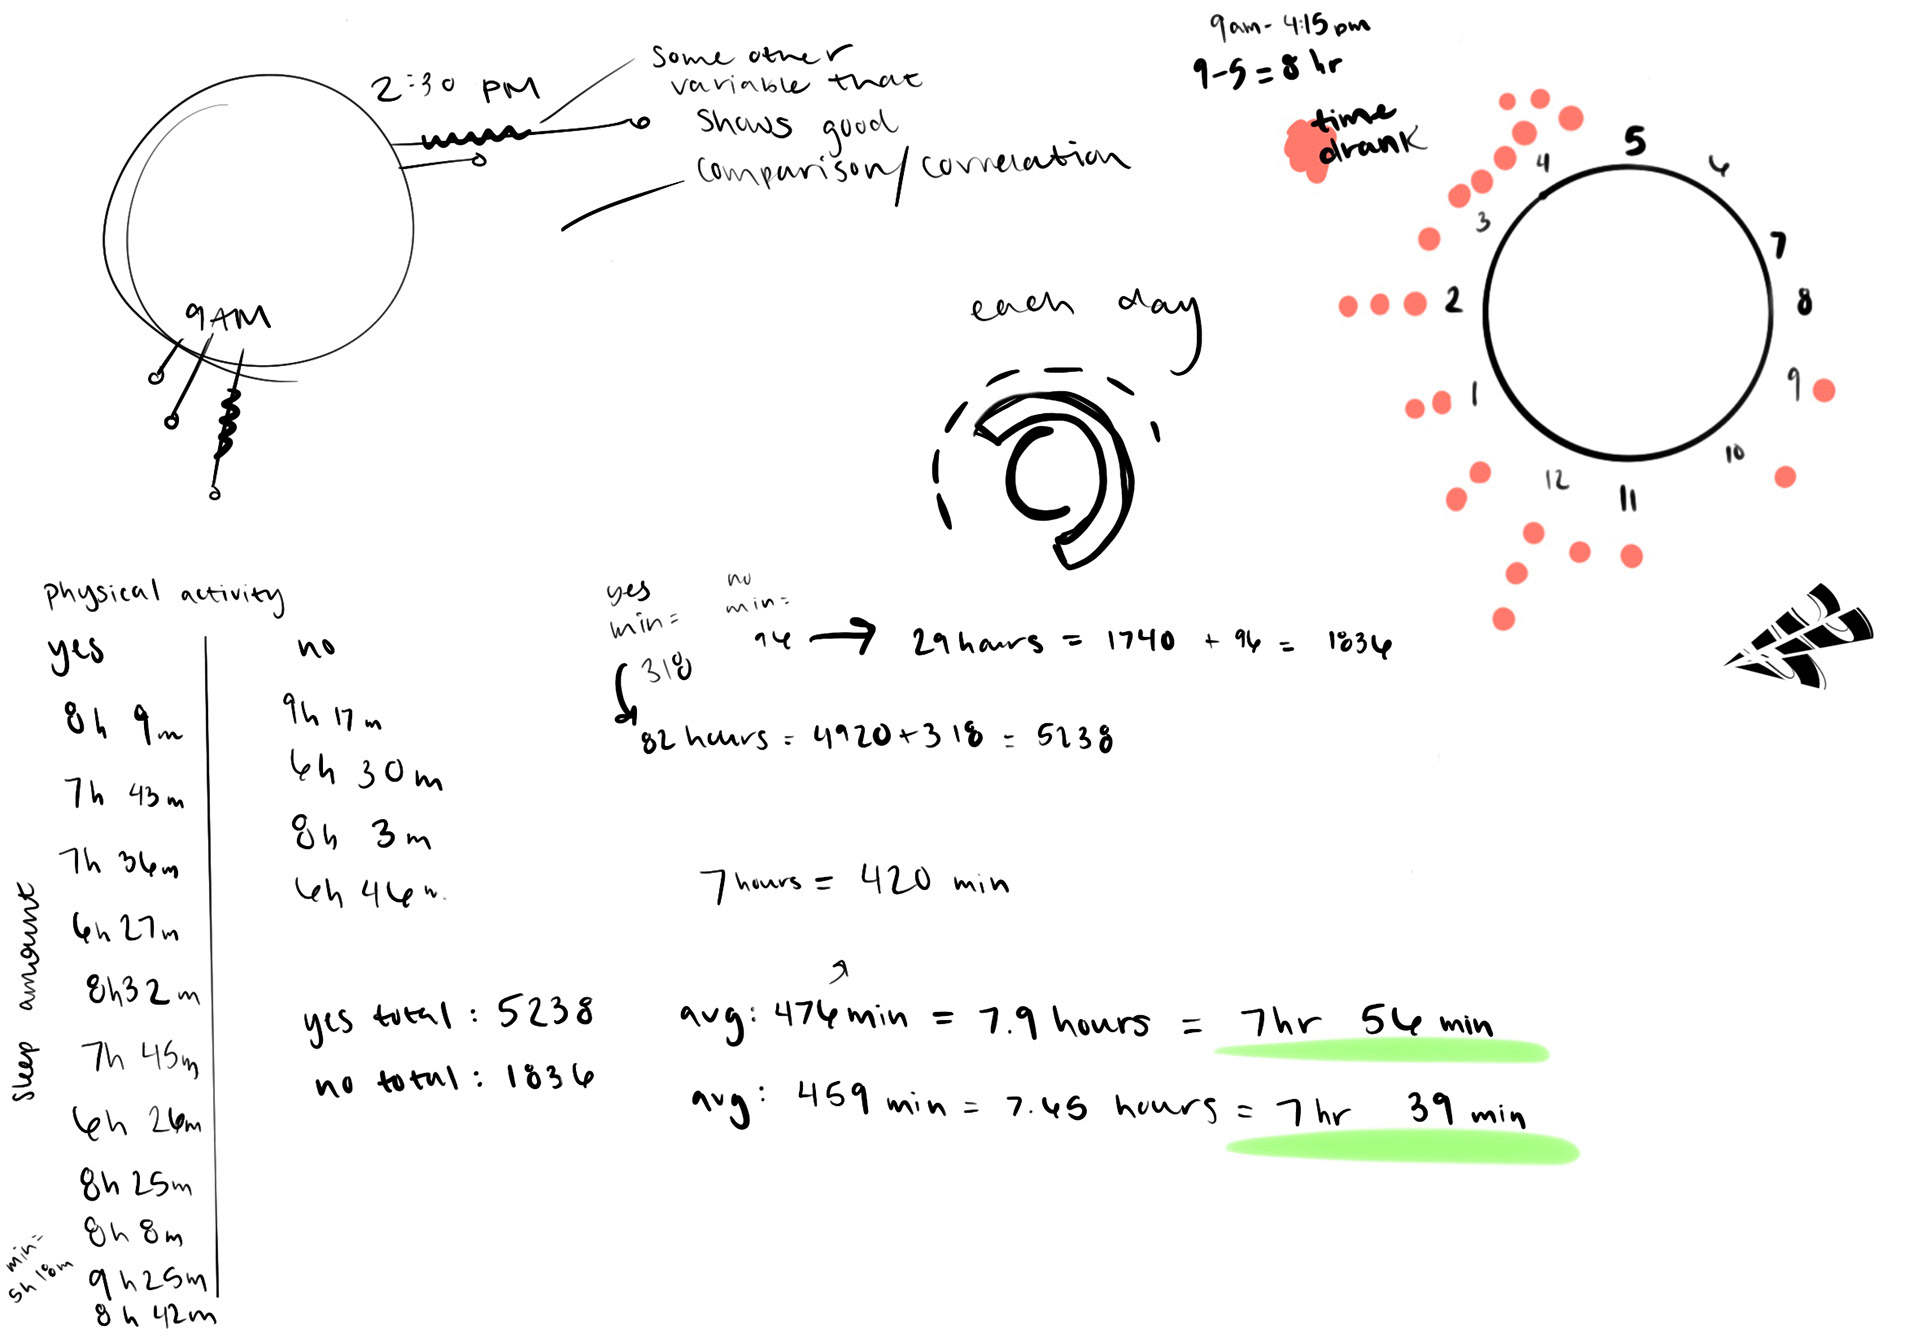 2:30 PM
some other
variable that
shows good
comparison/correlation
9AM
9am - 4:15pm
9-5 = 8 hr
time
drank
5
6
7
8
9
10
11
12
1
2
3
4
each day
physical activity
yes
no
sleep amount
8h 9m
7h 43m
7h 36m
6h 27m
8h 32m
7h 45m
6h 26m
8h 25m
8h 8m
9h 25m
8h 42m
min=
5h 18m
9h 17m
6h 30m
8h 3m
6h 46m
yes
min=
318
no
min=
96
29 hours = 1740 + 96 = 1836
82 hours = 4920 + 318 = 5238
7 hours = 420 min
yes total: 5238
avg: 476 min = 7.9 hours = 7hr 56 min
no total: 1836
avg: 459 min = 7.65 hours = 7hr 39 min